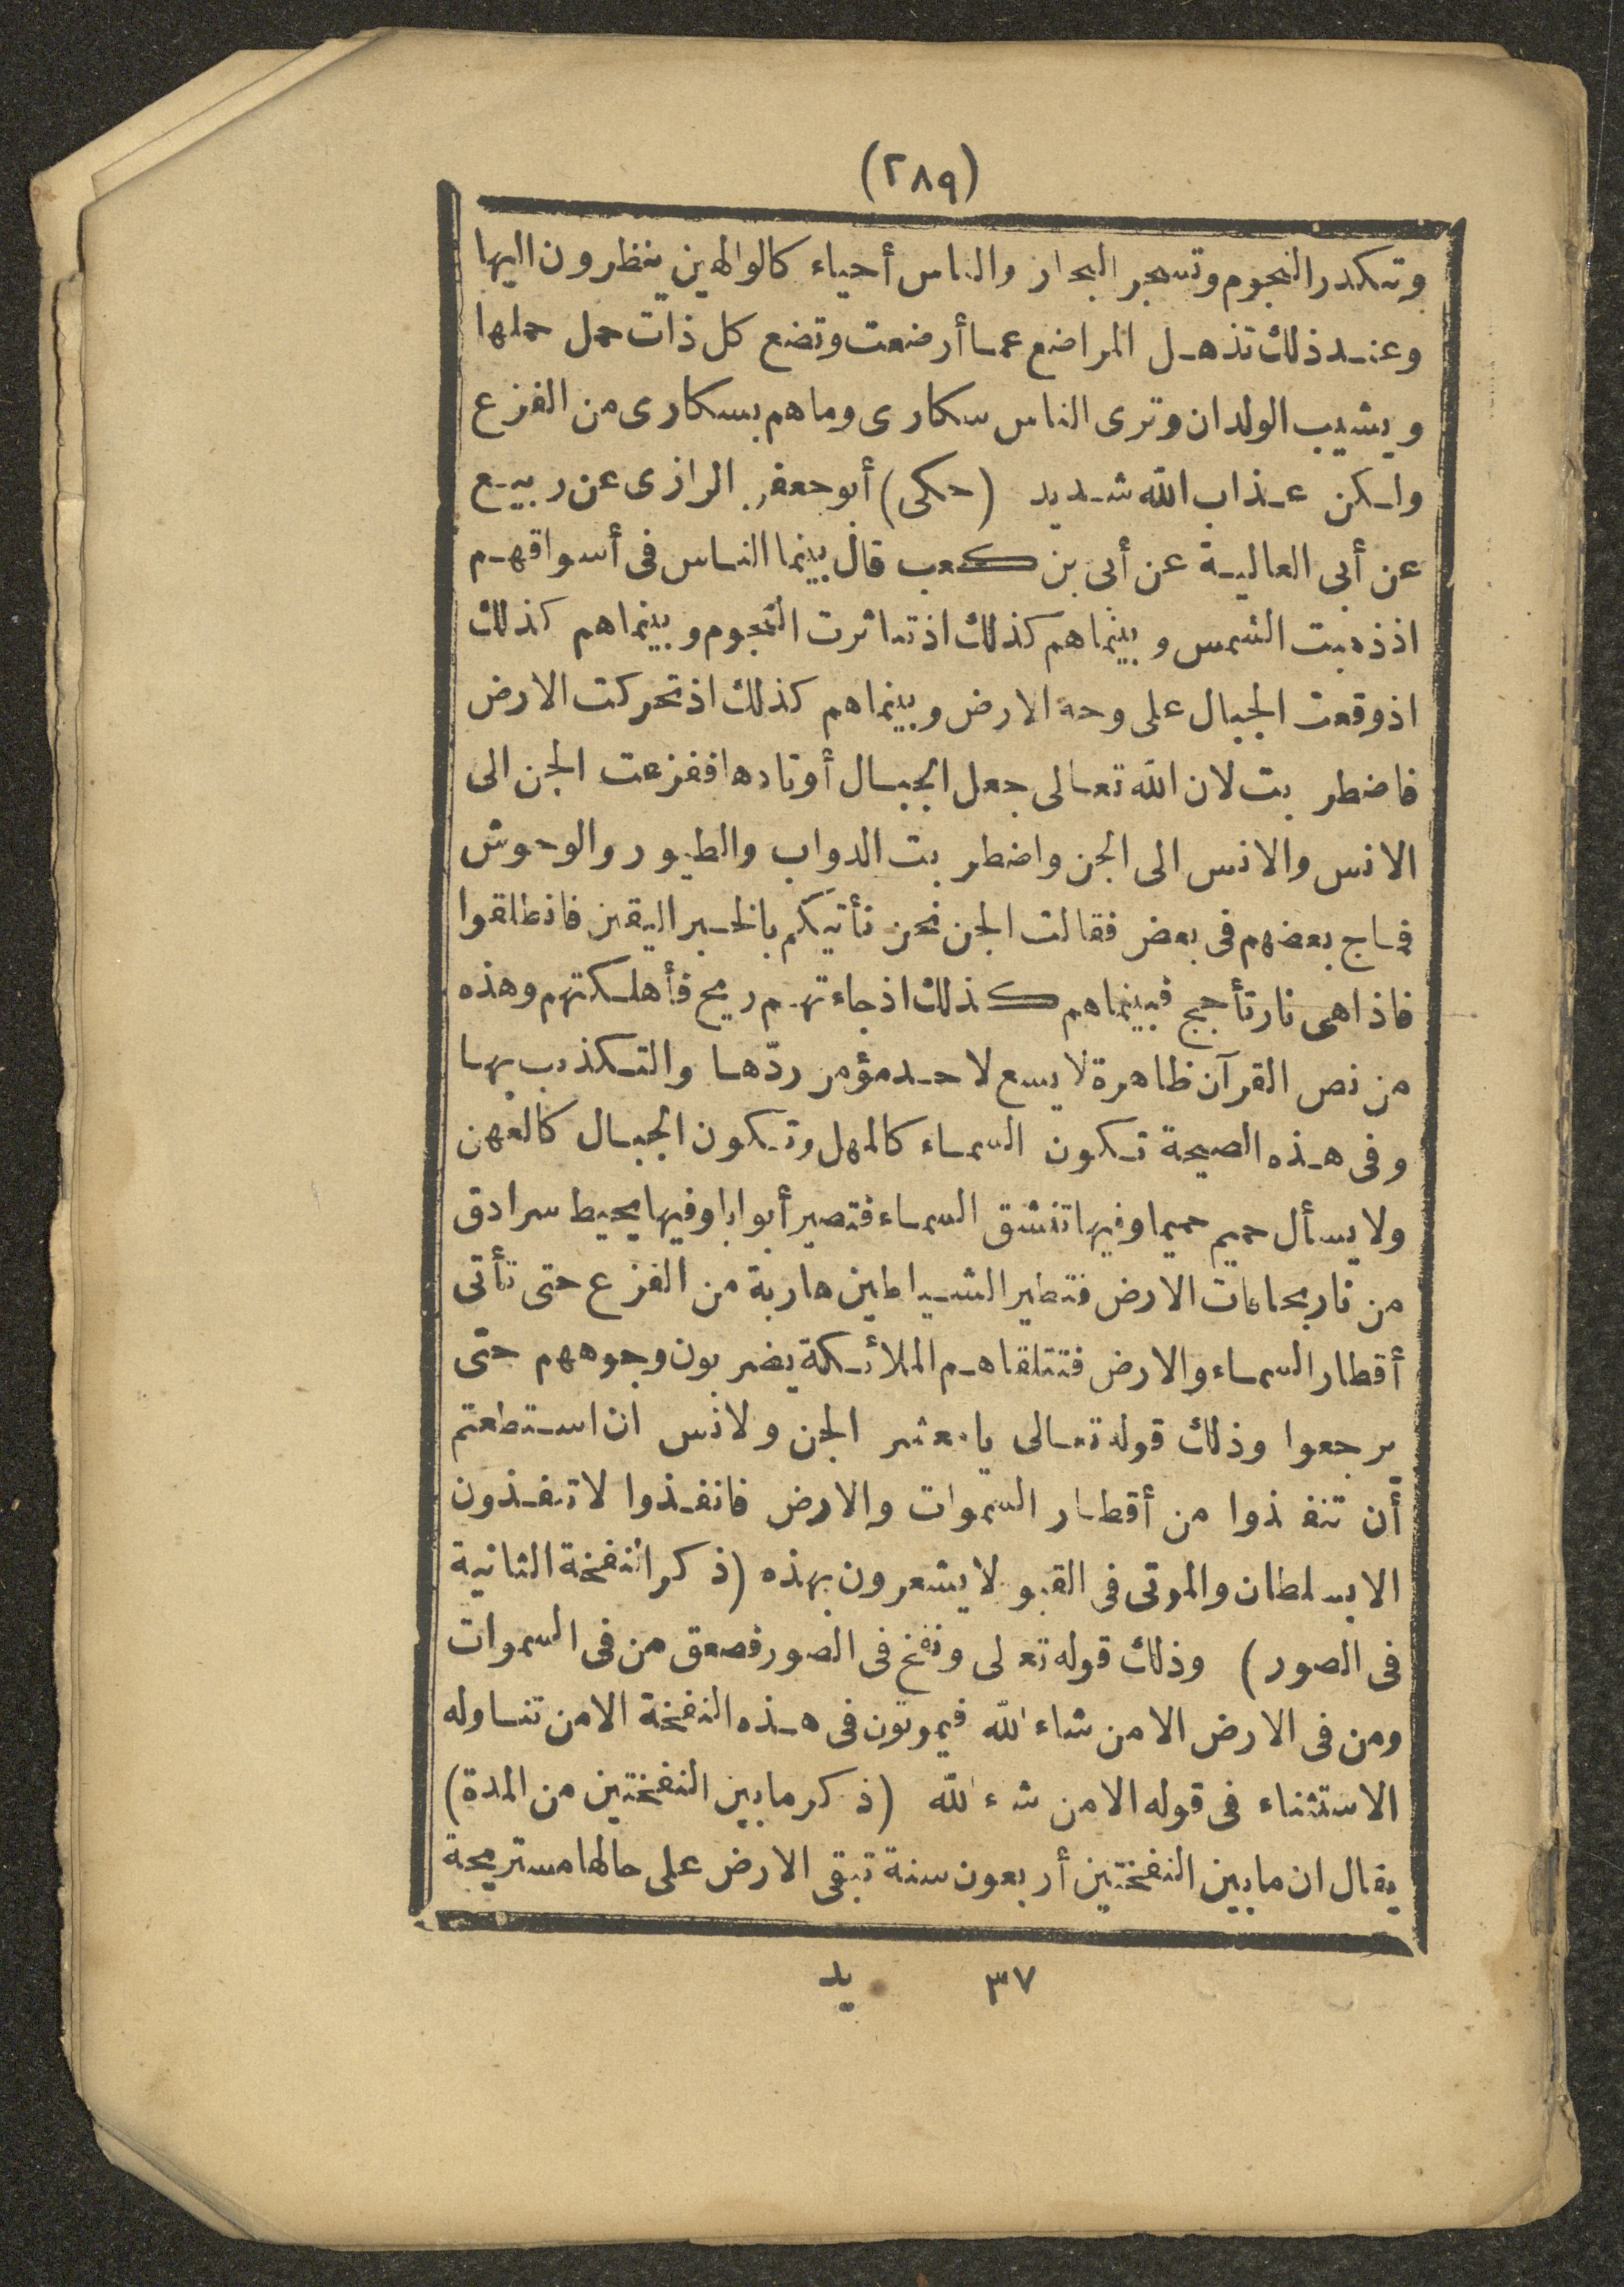 (٢٨٩)
وتكدر النجوم وتسجر البحار والناس أحياء كالوالهين ينظرون اليها
وعند ذلك تذهل المراضع عما أرضعت وتضع كل ذات حمل حملها
ويشيب الولدان وترى الناس سكارى وما هم بسكارى من الفزع
ولكن عذاب الله شديد (حكى) أبو جعفر الرازى عن ربيع
عن أبى العالية عن أبى بن كعب قال بينما الناس فى أسواقهم
اذ ذهبت الشمس وبينما هم كذلك اذ تناثرت النجوم وبينما هم كذلك
اذ وقعت الجبال على وجه الارض وبينما هم كذلك اذ تحركت الارض
فاضطربت لان الله تعالى جعل الجبال أوتادها ففزعت الجن الى
الانس والانس الى الجن واضطربت الدواب والطيور والوحوش
فماج بعضهم فى بعض فقالت الجن نحن نأتيكم بالخبر اليقين فانطلقوا
فاذا هى نار تأجج فبينما هم كذلك اذ جاءتهم ريح فأهلكتهم وهذه
من نص القرآن ظاهرة لا يسع لاحد مؤمن ردّها والتكذيب بها
وفى هذه الصيحة تكون السماء كالمهل وتكون الجبال كالعهن
ولا يسأل حميم حميما وفيها تنشق السماء فتصير أبوابا وفيها يحيط سرادق
من نار بحافات الارض فتطير الشياطين هاربة من الفزع حتى تأتى
أقطار السماء والارض فتتلقاهم الملائكة يضربون وجوههم حتى
يرجعوا وذلك قوله تعالى يامعشر الجن ولانس ان استطعتم
أن تنفذوا من أقطار السموات والارض فانفذوا لا تنفذون
الا بسلطان والموتى فى القبو لا يشعرون بهذه (ذكر النفخة الثانية
فى الصور) وذلك قوله تعلى ونفخ فى الصور فصعق من فى السموات
ومن فى الارض الا من شاء الله فيموتون فى هذه النفخة الا من تناوله
الاستثناء فى قوله الا من شء الله (ذكر مابين النفختين من المدة)
يقال ان مابين النفختين أربعون سنة تبقى الارض على حالها مستريحة
٣٧ يد